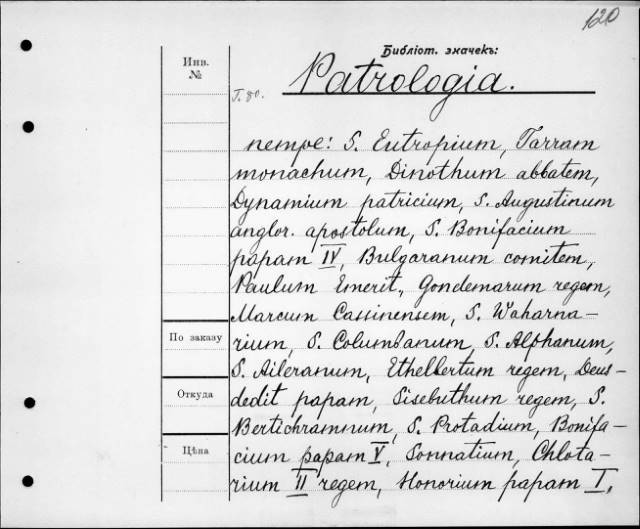 120
Библіот. значекъ:
Инв.
№
T. 80.
Patrologia.
nempe: S. Eutropium, Tarram
monachum, Dinothum abbatem,
Dynamium patricium, S. Augustinum
anglor. apostolum, S. Bonifacium
papam IV, Bulgaranum comitem,
Paulum Emerit., Gondemarum regem,
Marcum Cassinensem, S. Waharna-
По заказу
rium, S. Columbanum, S. Alphanum,
S. Aileranum, Ethelbertum regem, Deus-
Откуда
dedit papam, Sisebuthum regem, S.
Bertichramnum, S. Protadium, Bonifa-
Цѣна
cium papam V, Sonnatium, Chlota-
rium II regem, Honorium papam I,